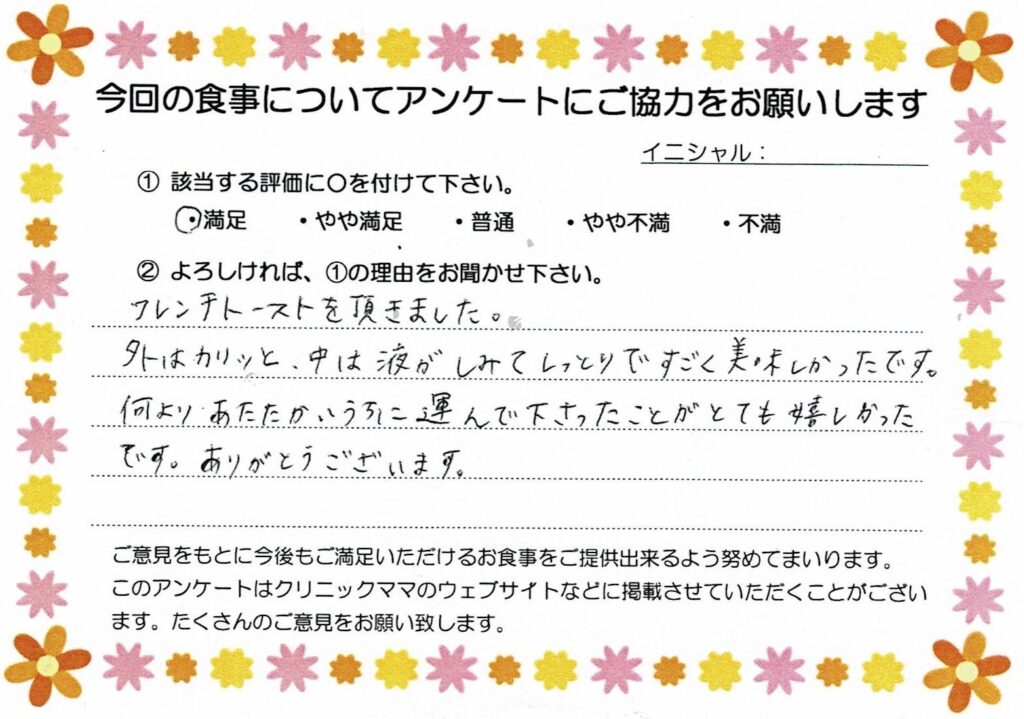 今回の食事についてアンケートにご協力をお願いします
イニシャル：
① 該当する評価に○を付けて下さい。
・満足 ・やや満足 ・普通 ・やや不満 ・不満
② よろしければ、①の理由をお聞かせ下さい。
フレンチトーストを頂きました。
外はカリッと、中は液がしみてしっとりですごく美味しかったです。
何よりあたたかいうちに運んで下さったことがとても嬉しかった
です。ありがとうございます。
ご意見をもとに今後もご満足いただけるお食事をご提供出来るよう努めてまいります。
このアンケートはクリニックママのウェブサイトなどに掲載させていただくことがござい
ます。たくさんのご意見をお願い致します。